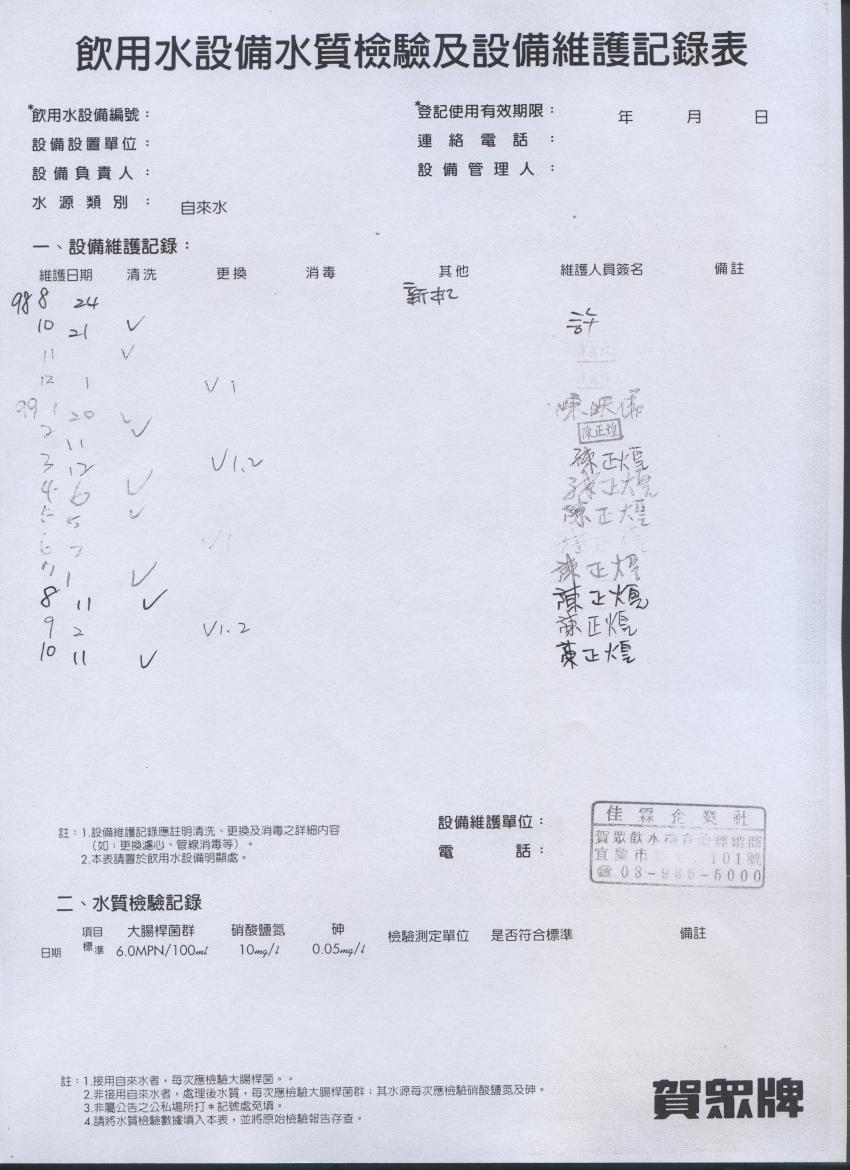 飲用水設備水質檢驗及設備維護記錄表
*飲用水設備編號： *登記使用有效期限： 年 月 日
設備設置單位： 連絡電話：
設備負責人： 設備管理人：
水源類別： 自來水
一、設備維護記錄：
維護日期 清洗 更換 消毒 其他 維護人員簽名 備註
98 8 24 新機
10 21 ✓ 許
11 ✓
12 1 ✓1
99 1 20 ✓ 陳
2 11 ✓ 陳正煌
3 12 ✓1.2 陳正煌
4 6 ✓ 陳正煌
5 5 ✓ 陳正煌
6 2 ✓1
7 1 ✓ 陳正煌
8 11 ✓ 陳正煌
9 2 ✓1.2 陳正煌
10 11 ✓ 陳正煌
註：1.設備維護記錄應註明清洗、更換及消毒之詳細內容
（如：更換濾心、管線消毒等）。
2.本表請置於飲用水設備明顯處。
設備維護單位：
電話：
佳霖企業社
賀眾飲水 經銷商
宜蘭市 101號
☎ 03-935-5000
二、水質檢驗記錄
項目 大腸桿菌群 硝酸鹽氮 砷 檢驗測定單位 是否符合標準 備註
日期 標準 6.0MPN/100ml 10mg/l 0.05mg/l
註：1.接用自來水者，每次應檢驗大腸桿菌。。
2.非接用自來水者，處理後水質，每次應檢驗大腸桿菌群；其水源每次應檢驗硝酸鹽氮及砷。
3.非屬公告之公私場所打＊記號處免填。
4.請將水質檢驗數據填入本表，並將原始檢驗報告存查。
賀眾牌